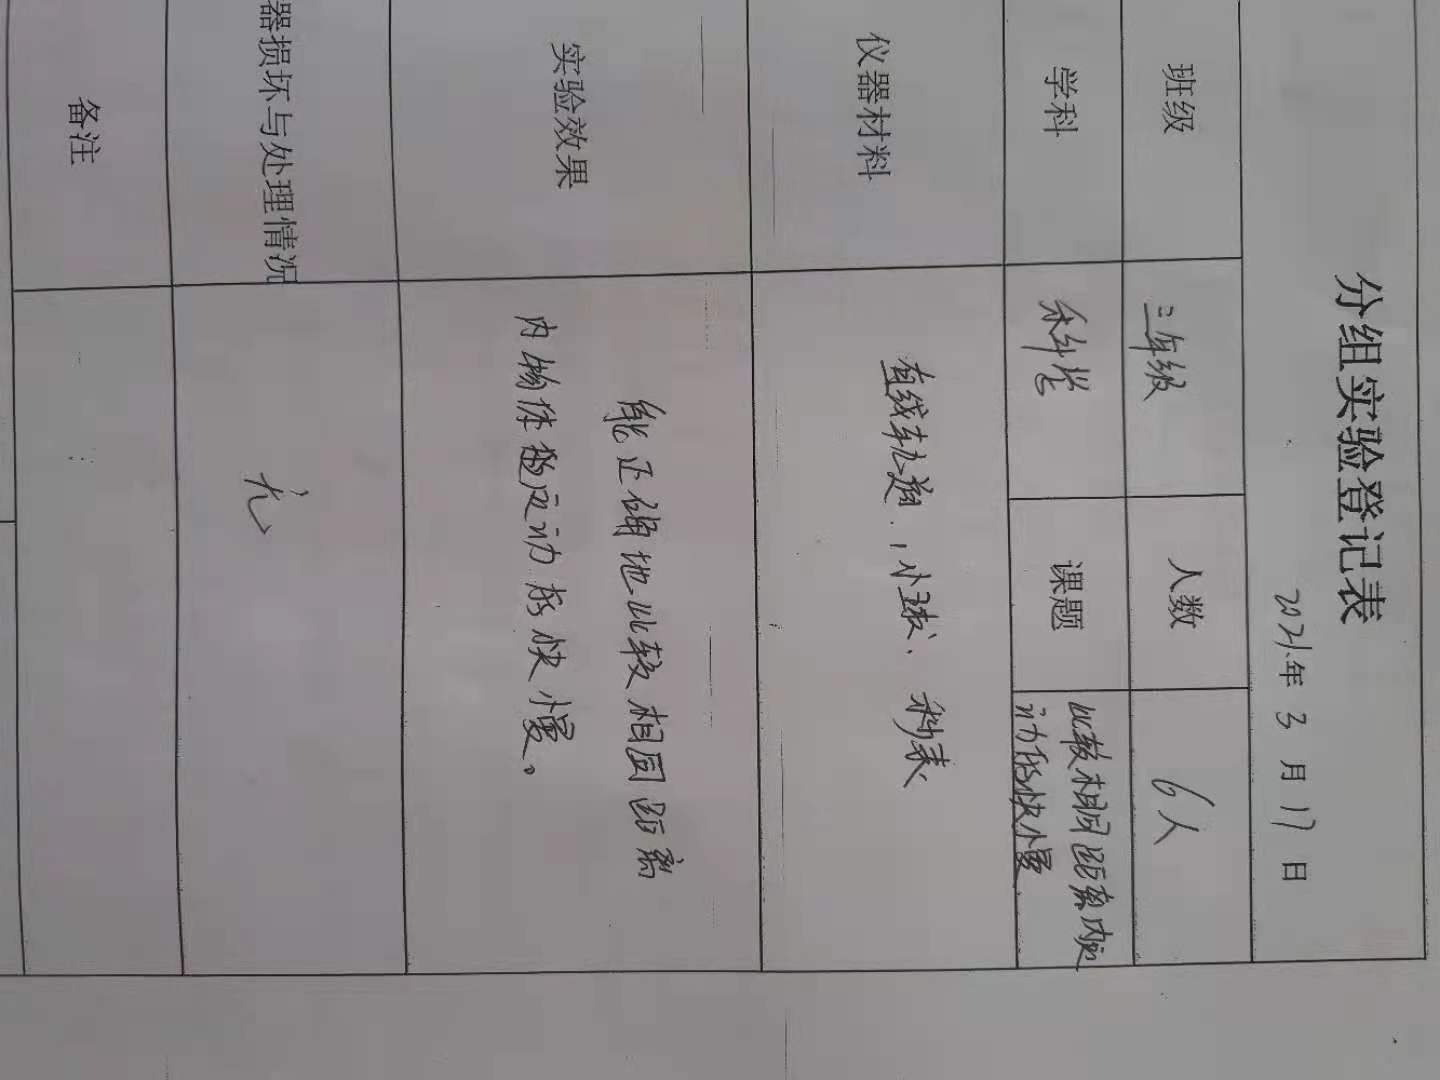 分组实验登记表
2021年 3 月 17 日
班级 三年级 人数 6人
学科 科学 课题 比较相同距离内运
动的快慢
仪器材料 直线轨道、小球、秒表
实验效果 能正确地比较相同距离
内物体运动的快慢。
器损坏与处理情况 无
备注